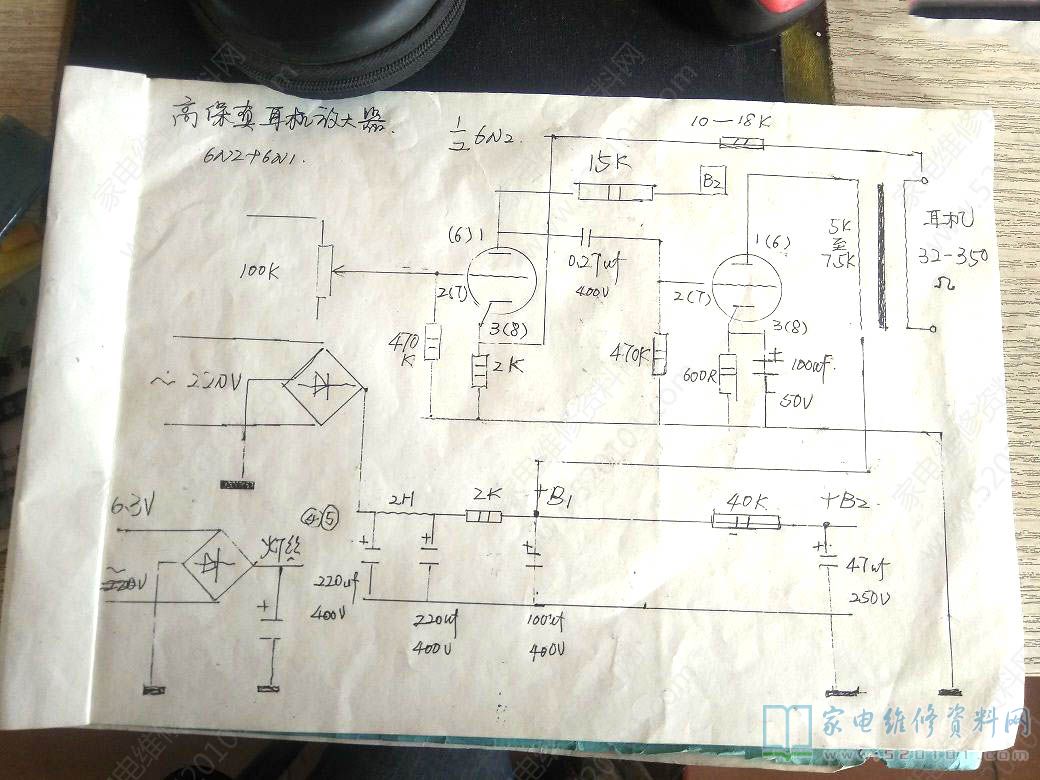 高保真耳机放大器.
6N2+6N1.
1/2 6N2.
10—18K
15K
B2
(6)1
1(6)
5K
至
7.5K
耳机
32-350
Ω
100K
0.27uf
400V
2(7)
2(7)
3(8)
3(8)
470
K
2K
470K
600R
100uf.
50V
~ 220V
6.3V
~
220V
灯丝
4.5
2H
2K
+B1
40K
+B2
220uf
400V
220uf
400V
100uf
400V
47uf
250V
家电维修资料网
www.520101.com